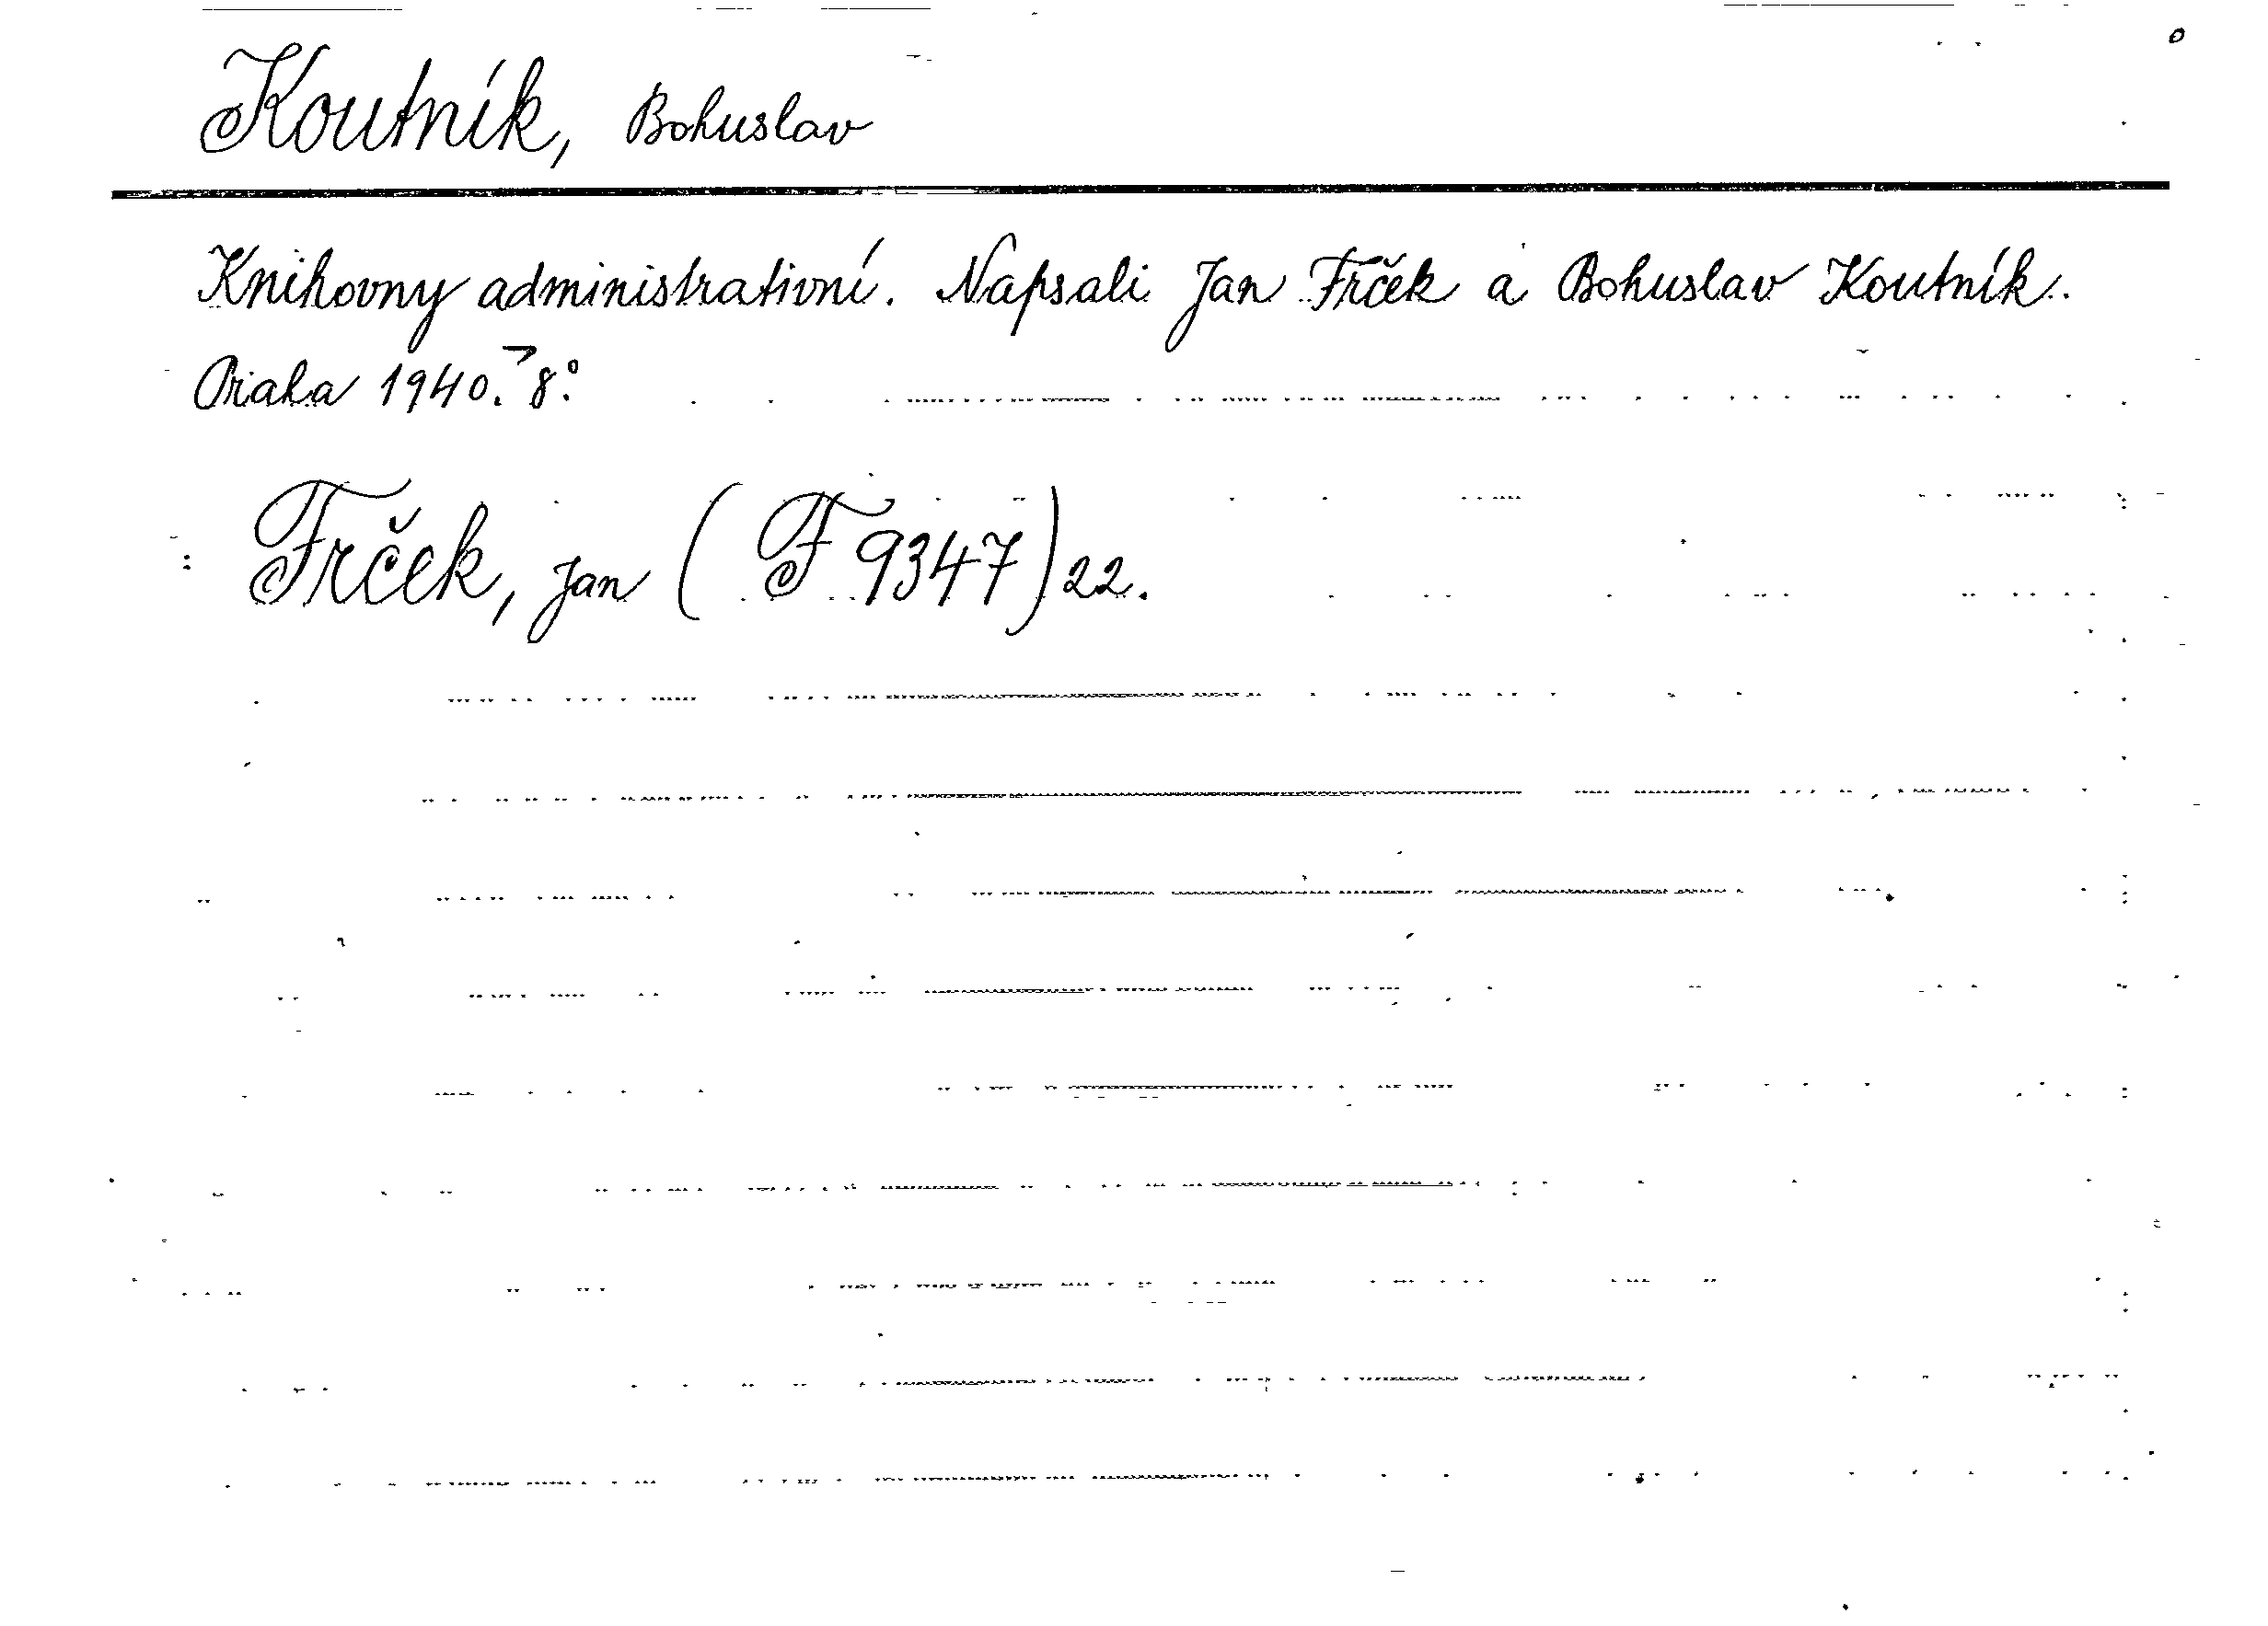 Koutník, Bohuslav
Knihovny administrativní. Napsali Jan Frček a Bohuslav Koutník.
Praha 1940. 8°.
Frček, Jan (F 9347) 22.